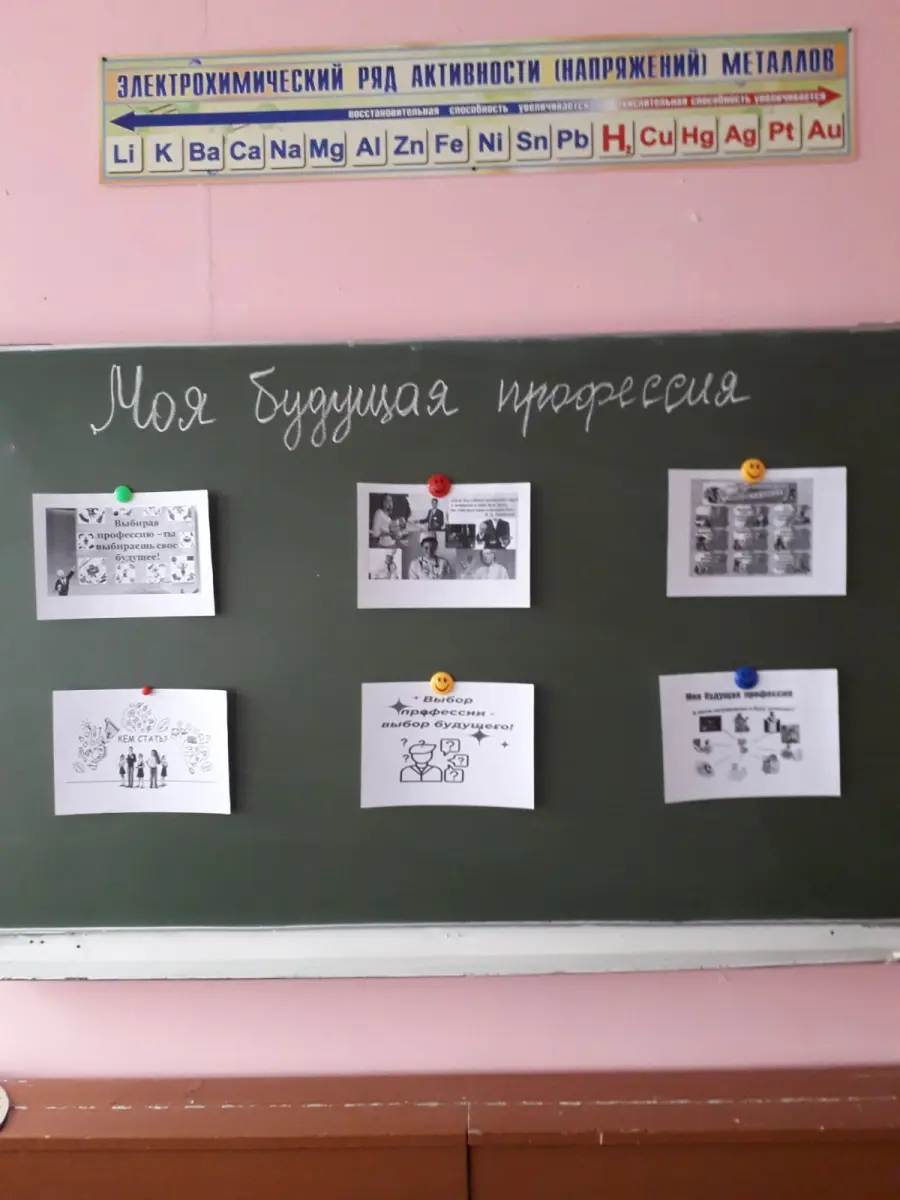 ЭЛЕКТРОХИМИЧЕСКИЙ РЯД АКТИВНОСТИ (НАПРЯЖЕНИЙ) МЕТАЛЛОВ
восстановительная способность увеличивается окислительная способность увеличивается
Li K Ba Ca Na Mg Al Zn Fe Ni Sn Pb H₂ Cu Hg Ag Pt Au
Моя будущая профессия
Выбирая
профессию – ты
выбираешь свое
будущее!
КЕМ СТАТЬ?
Выбор
профессии -
выбор будущего!
Моя будущая профессия